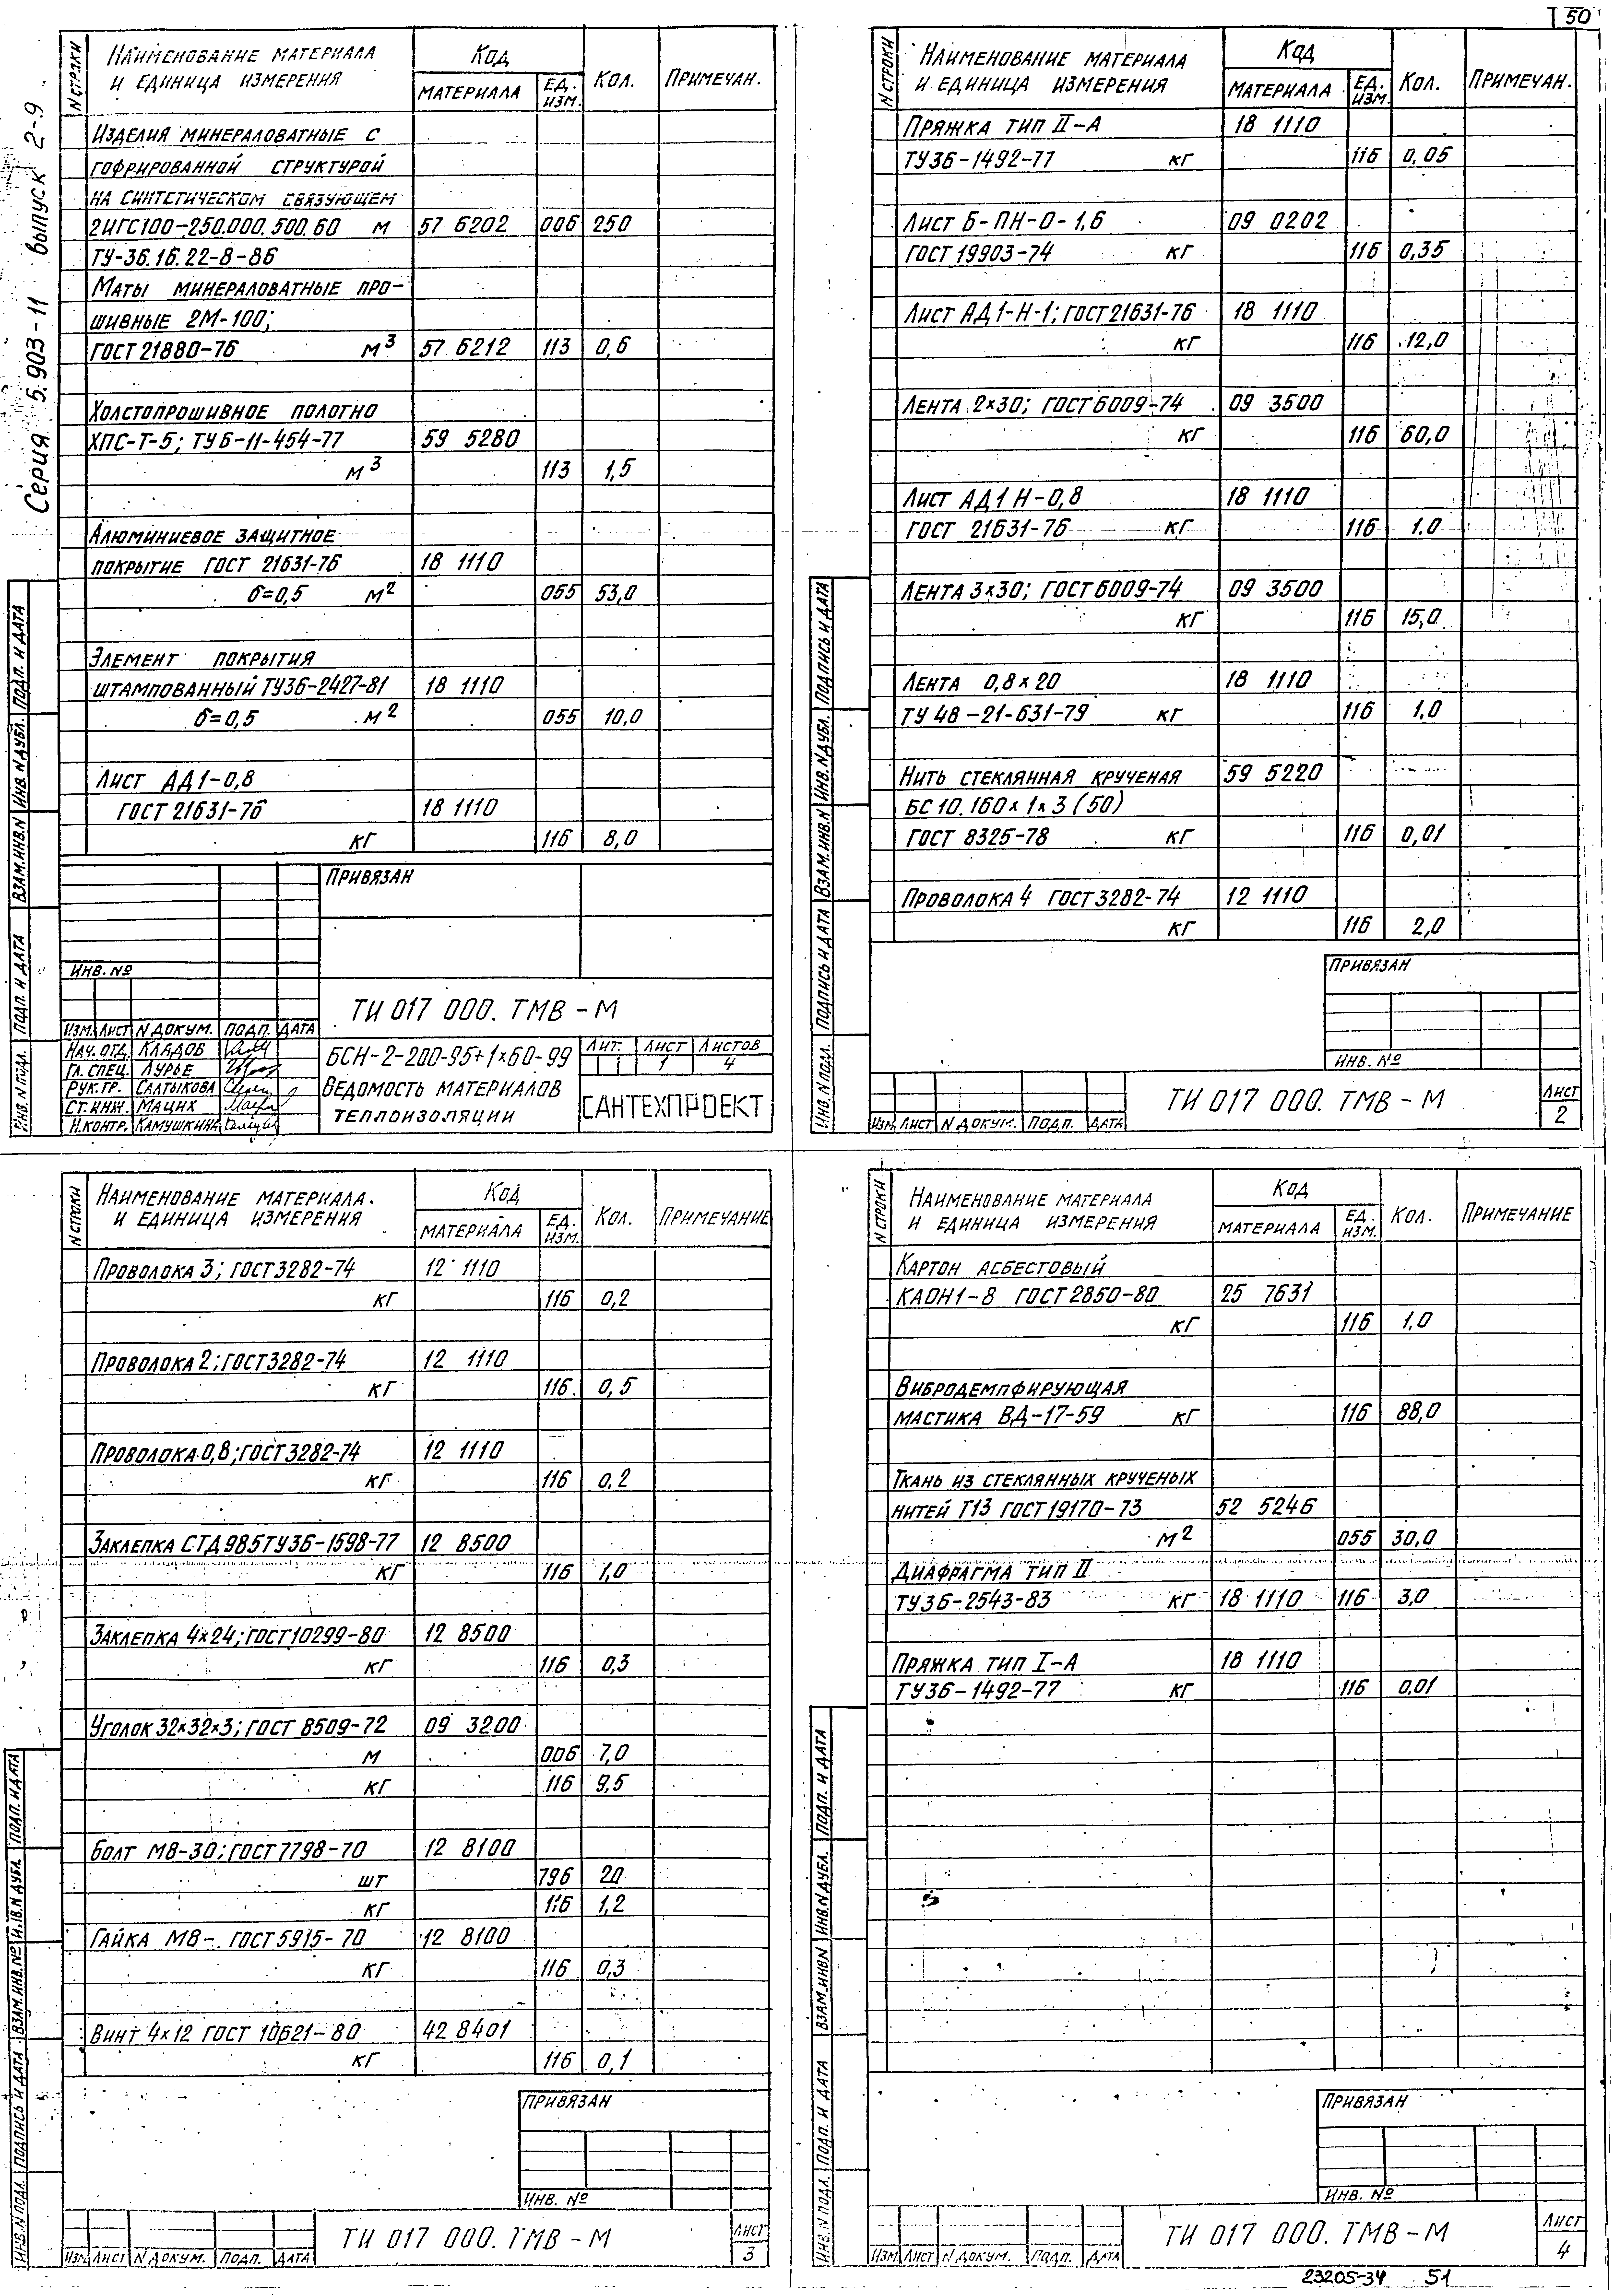 50
Серия 5.903-11 выпуск 2-9
N строки
Наименование материала
и единица измерения
Код
материала
Ед. изм.
Кол.
Примечан.
Изделия минераловатные с
гофрированной структурой
на синтетическом связующем
2ИГС100-250.000.500.60 м 57 6202 006 250
ТУ-36.16.22-8-86
Маты минераловатные про-
шивные 2М-100;
ГОСТ 21880-76 м3 57 6212 113 0,6
Холстопрошивное полотно
ХПС-Т-5; ТУ6-11-454-77 59 5280
м3 113 1,5
Алюминиевое защитное
покрытие ГОСТ 21631-76 18 1110
б=0,5 м2 055 53,0
Элемент покрытия
штампованный ТУ36-2427-81 18 1110
б=0,5 м2 055 10,0
Лист АД1-0,8
ГОСТ 21631-76 18 1110
кг 116 8,0
Привязан
Инв. №
Изм. Лист N докум. Подп. Дата
Нач. отд. Кладов
Гл. спец. Лурье
Рук. гр. Салтыкова
Ст. инж. Мацих
Н. контр. Камушкина
ТИ 017 000. ТМВ-М
БСН-2-200-95+1×60-99
Ведомость материалов
теплоизоляции
Лит. Лист Листов
1 4
САНТЕХПРОЕКТ
Инв. N подл. Подп. и дата Взам. инв. N Инв. N дубл. Подп. и дата
N строки
Наименование материала
и единица измерения
Код
материала
Ед. изм.
Кол.
Примечан.
Пряжка тип II-А 18 1110
ТУ36-1492-77 кг 116 0,05
Лист Б-ПН-О-1,6 09 0202
ГОСТ 19903-74 кг 116 0,35
Лист АД1-Н-1; ГОСТ 21631-76 18 1110
кг 116 12,0
Лента 2×30; ГОСТ 6009-74 09 3500
кг 116 60,0
Лист АД1 Н-0,8 18 1110
ГОСТ 21631-76 кг 116 1.0
Лента 3×30; ГОСТ 6009-74 09 3500
кг 116 15,0
Лента 0,8×20 18 1110
ТУ 48-21-631-79 кг 116 1,0
Нить стеклянная крученая 59 5220
БС 10.160×1×3 (50)
ГОСТ 8325-78 кг 116 0,01
Проволока 4 ГОСТ 3282-74 12 1110
кг 116 2,0
Привязан
Инв. №
Изм. Лист N докум. Подп. Дата
ТИ 017 000. ТМВ-М
Лист
2
Инв. N подл. Подпись и дата Взам. инв. N Инв. N дубл. Подпись и дата
N строки
Наименование материала.
и единица измерения
Код
материала
Ед. изм.
Кол.
Примечание
Проволока 3; ГОСТ 3282-74 12 1110
кг 116 0,2
Проволока 2; ГОСТ 3282-74 12 1110
кг 116 0,5
Проволока 0,8; ГОСТ 3282-74 12 1110
кг 116 0,2
Заклепка СТД 985 ТУ36-1598-77 12 8500
кг 116 1,0
Заклепка 4×24; ГОСТ 10299-80 12 8500
кг 116 0,3
Уголок 32×32×3; ГОСТ 8509-72 09 3200
м 006 7,0
кг 116 9,5
Болт М8-30; ГОСТ 7798-70 12 8100
шт 796 20
кг 116 1,2
Гайка М8-. ГОСТ 5915-70 12 8100
кг 116 0,3
Винт 4×12 ГОСТ 10621-80 42 8401
кг 116 0,1
Привязан
Инв. №
Изм. Лист N докум. Подп. Дата
ТИ 017 000. ТМВ-М
Лист
3
Инв. N подл. Подпись и дата Взам. инв. № Инв. N дубл. Подп. и дата
N строки
Наименование материала
и единица измерения
Код
материала
Ед. изм.
Кол.
Примечание
Картон асбестовый
КАОН1-8 ГОСТ 2850-80 25 7631
кг 116 1,0
Вибродемпфирующая
мастика ВД-17-59 кг 116 88,0
Ткань из стеклянных крученых
нитей Т13 ГОСТ 19170-73 52 5246
м2 055 30,0
Диафрагма тип II
ТУ36-2543-83 кг 18 1110 116 3,0
Пряжка тип I-А 18 1110
ТУ36-1492-77 кг 116 0,01
Привязан
Инв. №
Изм. Лист N докум. Подп. Дата
ТИ 017 000. ТМВ-М
Лист
4
Инв. N подл. Подп. и дата Взам. инв. N Инв. N дубл. Подп. и дата
23205-34 51